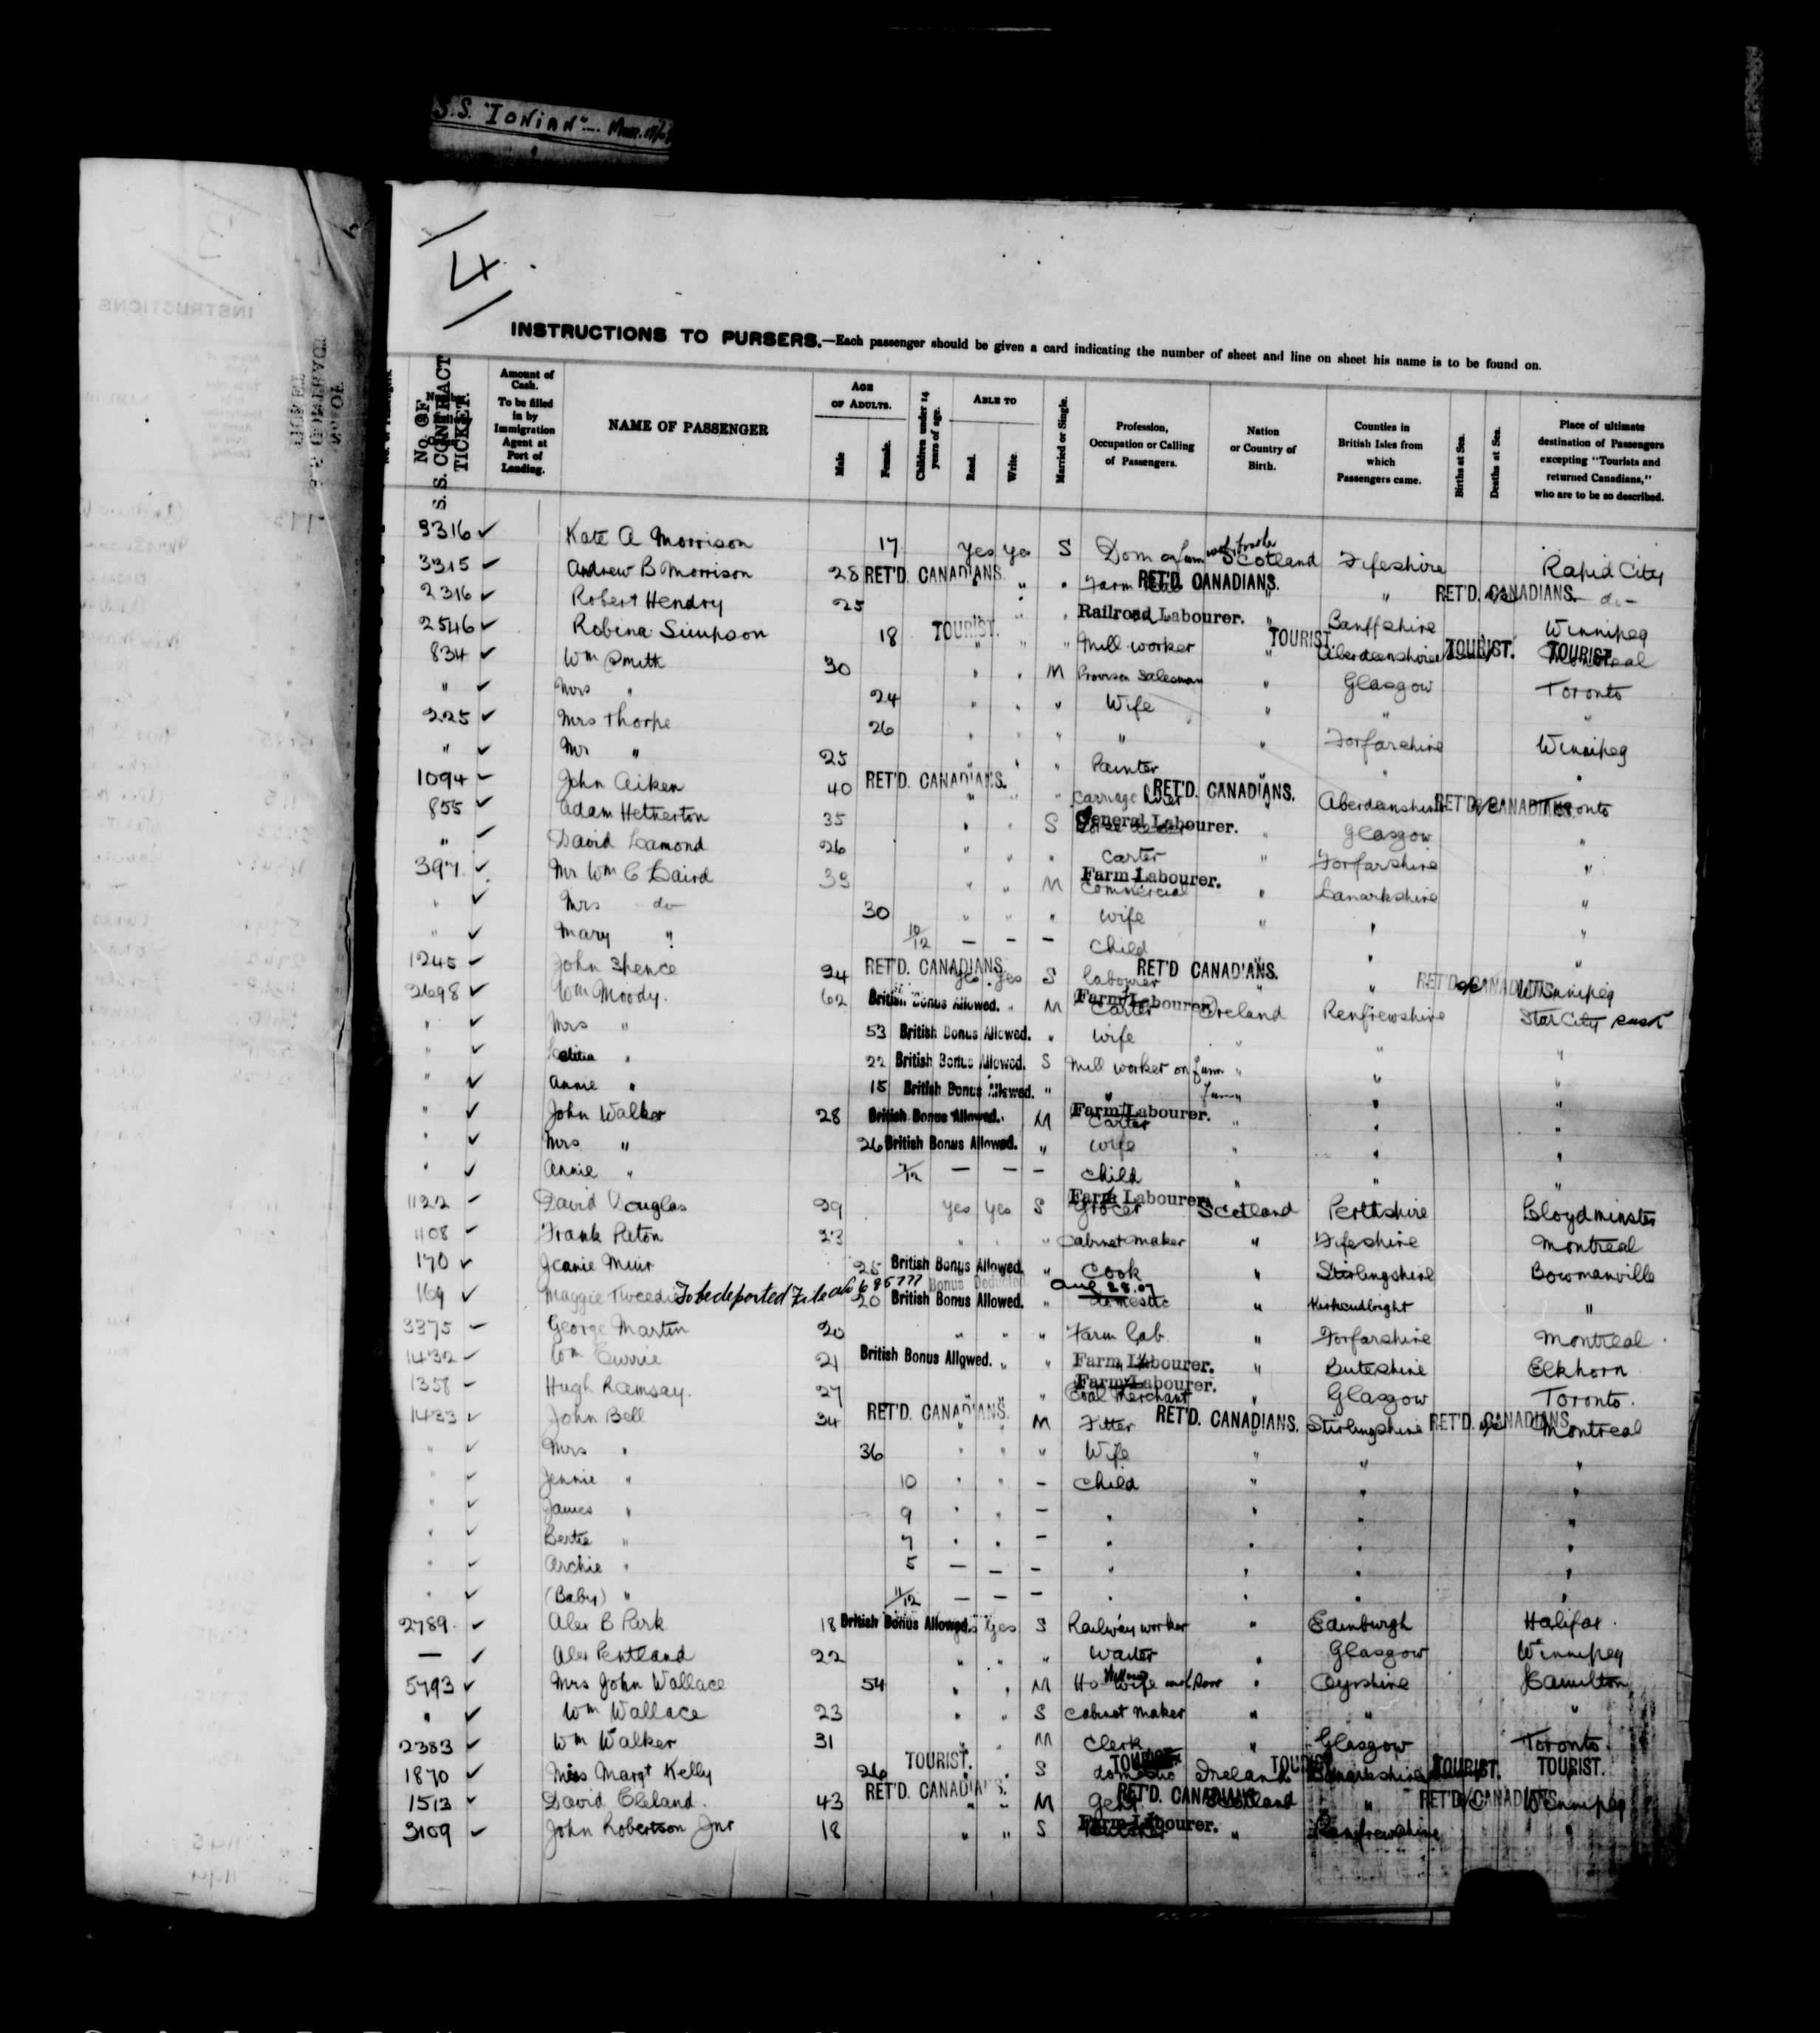 S.S. "IONIAN"
4
INSTRUCTIONS TO PURSERS.—Each passenger should be given a card indicating the number of sheet and line on sheet his name is to be found on.
S. S. CONTRACT TICKET. Amount of Cash. To be filled in by Immigration Agent at Port of Landing. NAME OF PASSENGER AGE OF ADULTS. Male Female. Children under 14 years of age. ABLE TO Read. Write. Married or Single. Profession, Occupation or Calling of Passengers. Nation or Country of Birth. Counties in British Isles from which Passengers came. Births at Sea. Deaths at Sea. Place of ultimate destination of Passengers excepting "Tourists and returned Canadians," who are to be so described.
3316 ✓ Kate A Morrison 17 Yes Yes S Dom Scotland Fifeshire Rapid City
3315 ✓ Andrew B Morrison 28 RET'D. CANADIANS. " " Farm RET'D. CANADIANS. " " RET'D. CANADIANS. - do -
2316 ✓ Robert Hendry 25 " " Railroad Labourer. " Banffshire Winnipeg
2546 ✓ Robina Simpson 18 TOURIST. " " " Mill worker " TOURIST. Aberdeenshire TOURIST. TOURIST. Montreal
834 ✓ Wm Smith 30 " " M Provision Salesman " Glasgow Toronto
" ✓ Mrs " 24 " " " Wife " " "
225 ✓ Mrs Thorpe 26 " " " " " Forfarshire Winnipeg
" ✓ Mr " 25 " " " Painter " " "
1094 ✓ John Aiken 40 RET'D. CANADIANS. " " " Carriage RET'D. CANADIANS. " Aberdeenshire RET'D. CANADIANS. Toronto
855 ✓ Adam Hetherton 35 " " S General Labourer. " Glasgow "
" ✓ David Lamond 26 " " " Carter " Forfarshire "
397 ✓ Mr Wm C Laird 33 " " M Farm Labourer. Commercial " Lanarkshire "
" ✓ Mrs do 30 " " " Wife " " "
" ✓ Mary " 10/12 — — — Child " " "
1245 ✓ John Spence 34 RET'D. CANADIANS. Yes Yes S Labourer RET'D CANADIANS. " " RET'D. CANADIANS. Winnipeg
2698 ✓ Wm Moody. 62 British Bonus Allowed. " M Farm Labourer. Carter Ireland Renfrewshire Star City Sask
" ✓ Mrs " 53 British Bonus Allowed. " Wife " " "
" ✓ Letitia " 22 British Bonus Allowed. S Mill worker on farm " " "
" ✓ Annie " 15 British Bonus Allowed. " " farm " " "
" ✓ John Walker 28 British Bonus Allowed. M Farm Labourer. Carter " " "
" ✓ Mrs " 26 British Bonus Allowed. " Wife " " "
" ✓ Annie " — — — Child " " "
1122 ✓ David Douglas 29 Yes Yes S Farm Labourer. Grocer Scotland Perthshire Lloydminster
1108 ✓ Frank Paton 23 " " " Cabinet Maker " Fifeshire Montreal
170 ✓ Jeanie Muir 25 British Bonus Allowed. " Cook " Stirlingshire Bowmanville
169 ✓ Maggie Tweedie To be deported File Bonus Deducted Aug 28.07 20 British Bonus Allowed. " Domestic " Kirkcudbright "
3375 ✓ George Martin 20 " " " Farm Lab. " Forfarshire Montreal
1432 ✓ Wm Currie 21 British Bonus Allowed. " " Farm Labourer. " Buteshire Elkhorn
1358 ✓ Hugh Ramsay. 27 " " " Farm Labourer. Coal Merchant " Glasgow Toronto.
1433 ✓ John Bell 34 RET'D. CANADIANS. " " M Fitter RET'D. CANADIANS. " Stirlingshire RET'D. CANADIANS. Montreal
" ✓ Mrs " 36 " " " Wife " " "
" ✓ Jennie " 10 " " — Child " " "
" ✓ James " 9 " " — " " " "
" ✓ Bertie " 7 " " — " " " "
" ✓ Archie " 5 — — — " " " "
" ✓ (Baby) " 11/12 — — — " " " "
2789 ✓ Alex B Park 18 British Bonus Allowed. Yes Yes S Railway worker " Edinburgh Halifax.
— ✓ Alex Pentland 22 " " " Waiter " Glasgow Winnipeg
5793 ✓ Mrs John Wallace 54 " " M Ho Wife " Ayrshire Hamilton
" ✓ Wm Wallace 23 " " S Cabinet Maker " " "
2383 ✓ Wm Walker 31 " " M Clerk " Glasgow Toronto.
1870 ✓ Miss Margt Kelly 26 TOURIST. " " S TOURIST. Domestic Ireland TOURIST. Lanarkshire TOURIST. TOURIST.
1513 ✓ David Cleland. 43 RET'D. CANADIANS. " " M Gent RET'D. CANADIANS. Scotland " RET'D. CANADIANS. Winnipeg
3109 ✓ John Robertson Jnr 18 " " S Farm Labourer. " Renfrewshire "